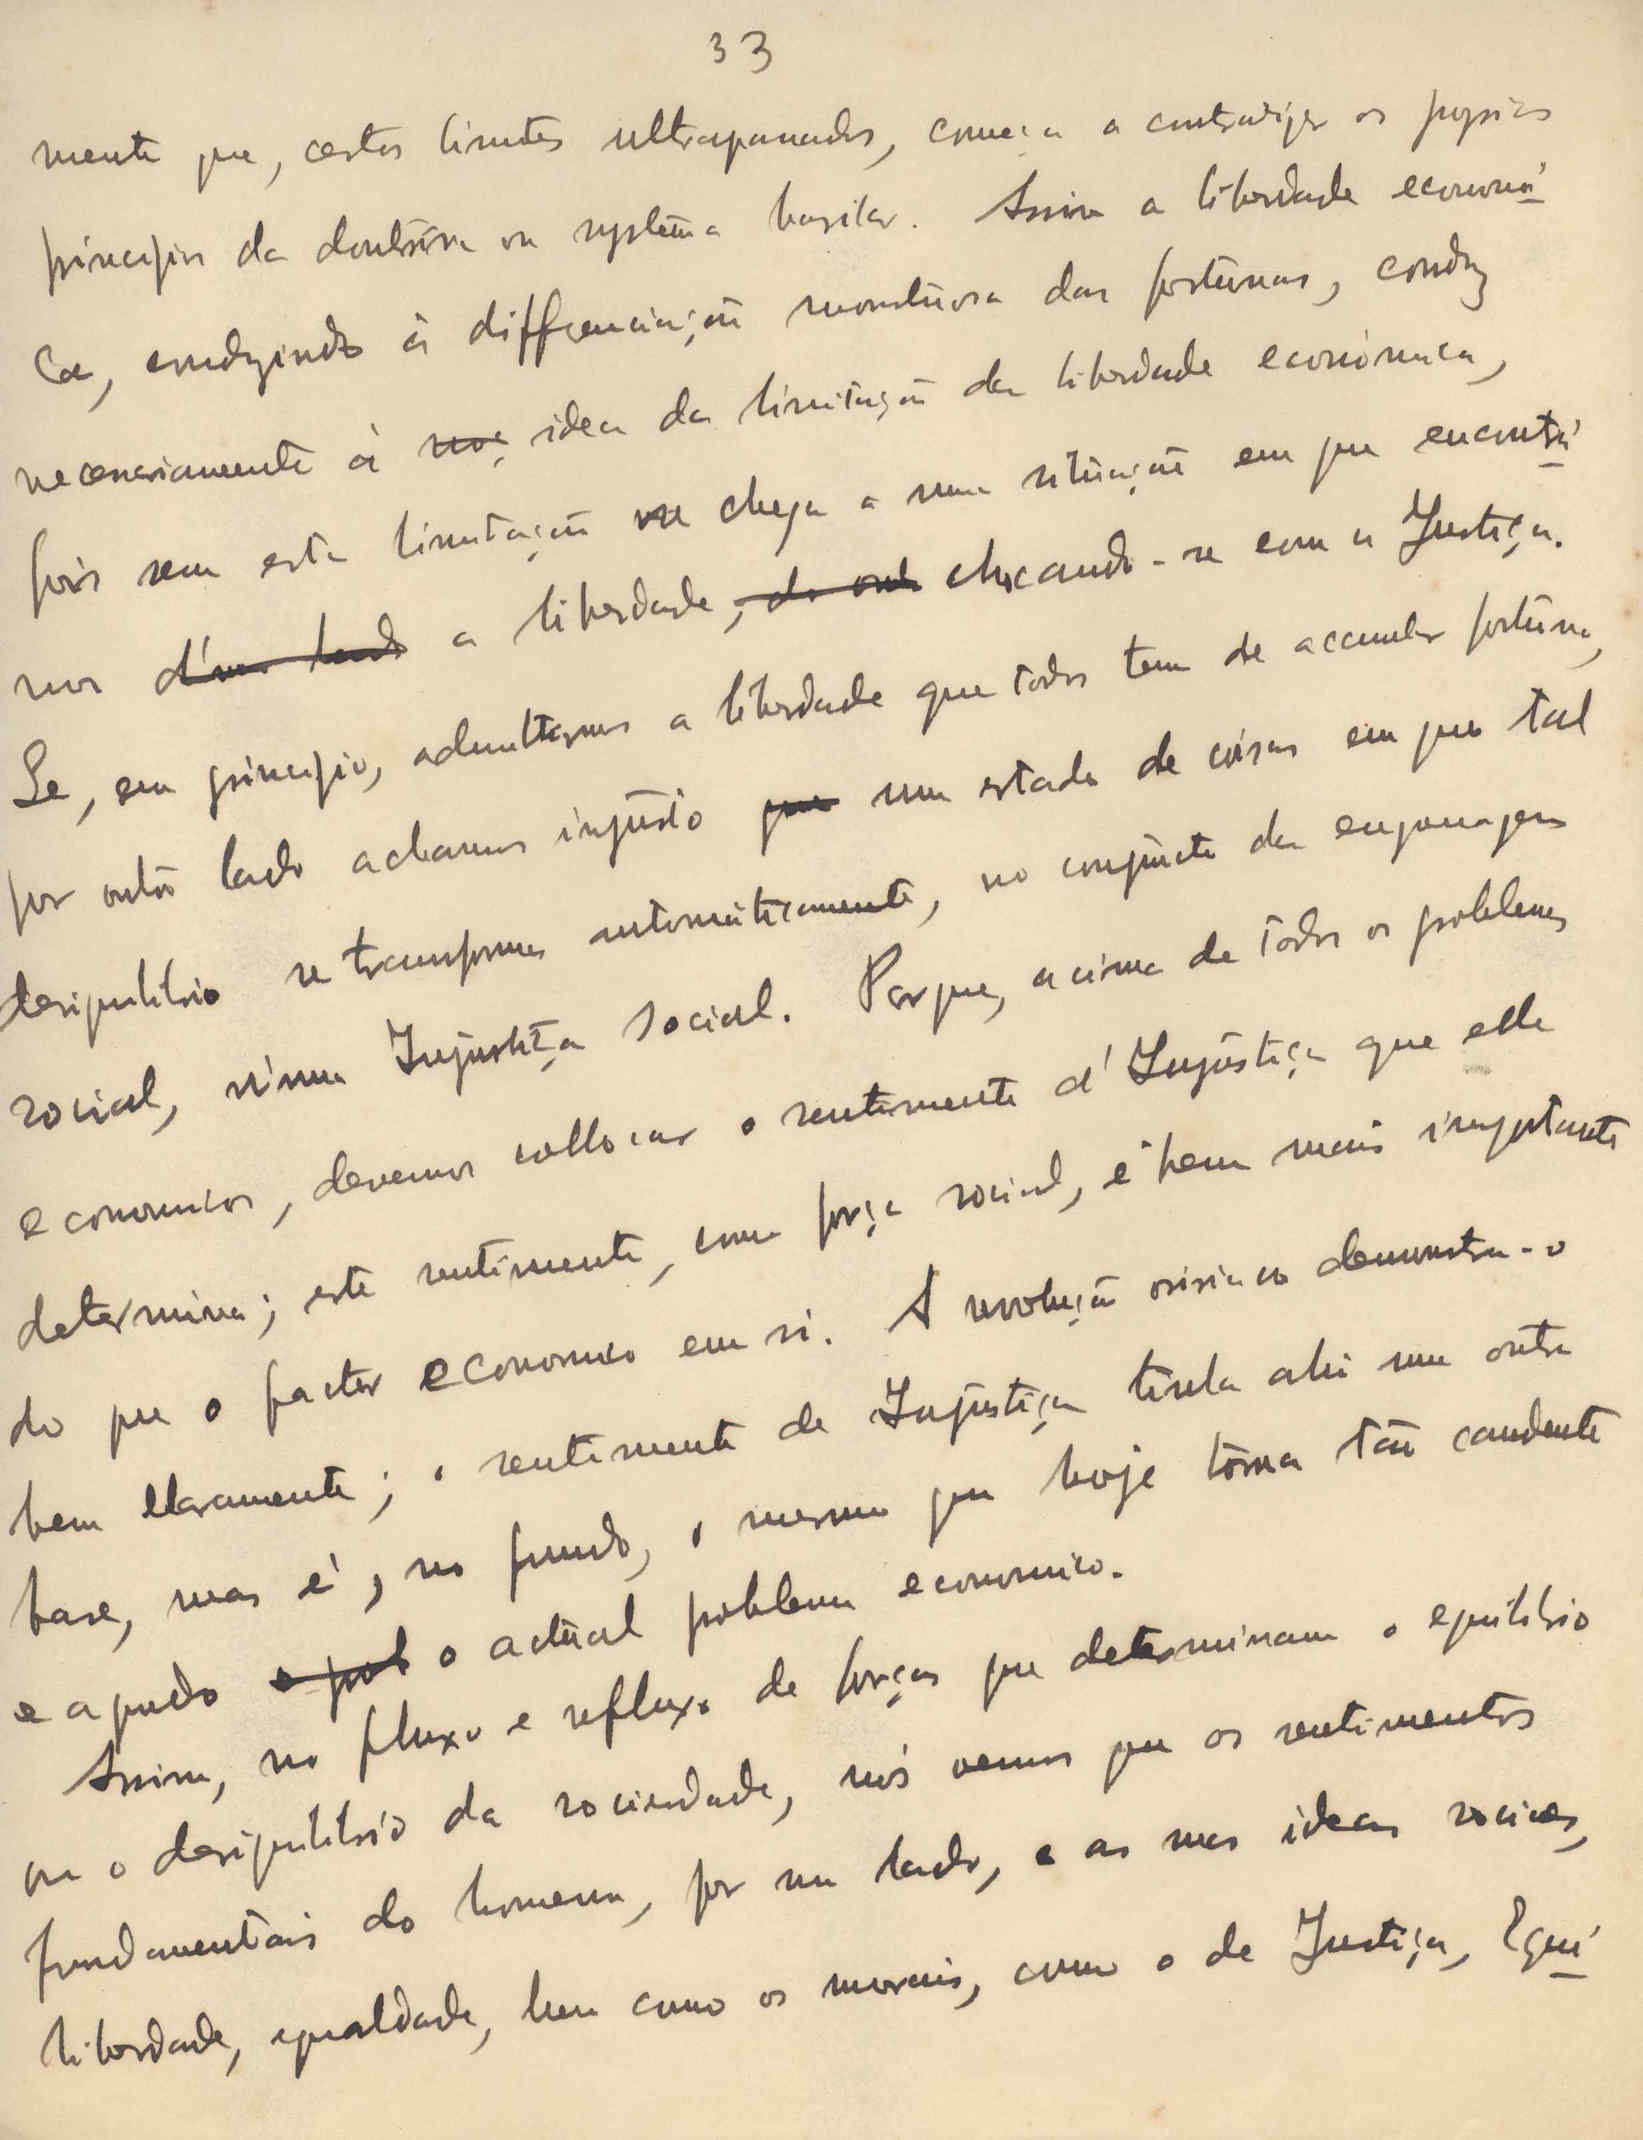 33
mente que, certos limites ultrapassados, começa a contradizer os proprios
principios da doutrina ou systema basilar. Assim a liberdade economi
ca, conduzindo á differenciação monstruosa das fortunas, conduz
necessariamente á idea da limitação da liberdade económica,
pois sem esta limitação se chega a uma situação em que encontrá
mos d'um lado a liberdade, chocando-se com a Justiça.
Se, em principio, admittimos a liberdade que todos tem de accumular fortuna,
por outro lado achamos injusto que um estado de coisas em que tal
desiquilibrio se transforma automáticamente, no conjuncto da engrenagem
social, n'uma Injustiça social. Porque, acima de todos os problemas
economicos, devemos collocar o sentimento d'Injustiça que elle
determina; este sentimento, como força social, é bem mais importante
do que o factor economico em si. A revolução demonstra-o
bem claramente; o sentimento de Injustiça tinha ahi uma outra
base, mas é, no fundo, o mesmo que hoje torna tão candente
e agudo o actual problema economico.
Assim, no fluxo e refluxo de forças que determinam o equilibrio
ou o desiquilibrio da sociedade, nós vemos que os sentimentos
fundamentais do homem, por um lado, e as suas ideas sociaes,
liberdade, igualdade, bem como os morais, como o de Justiça, Equi